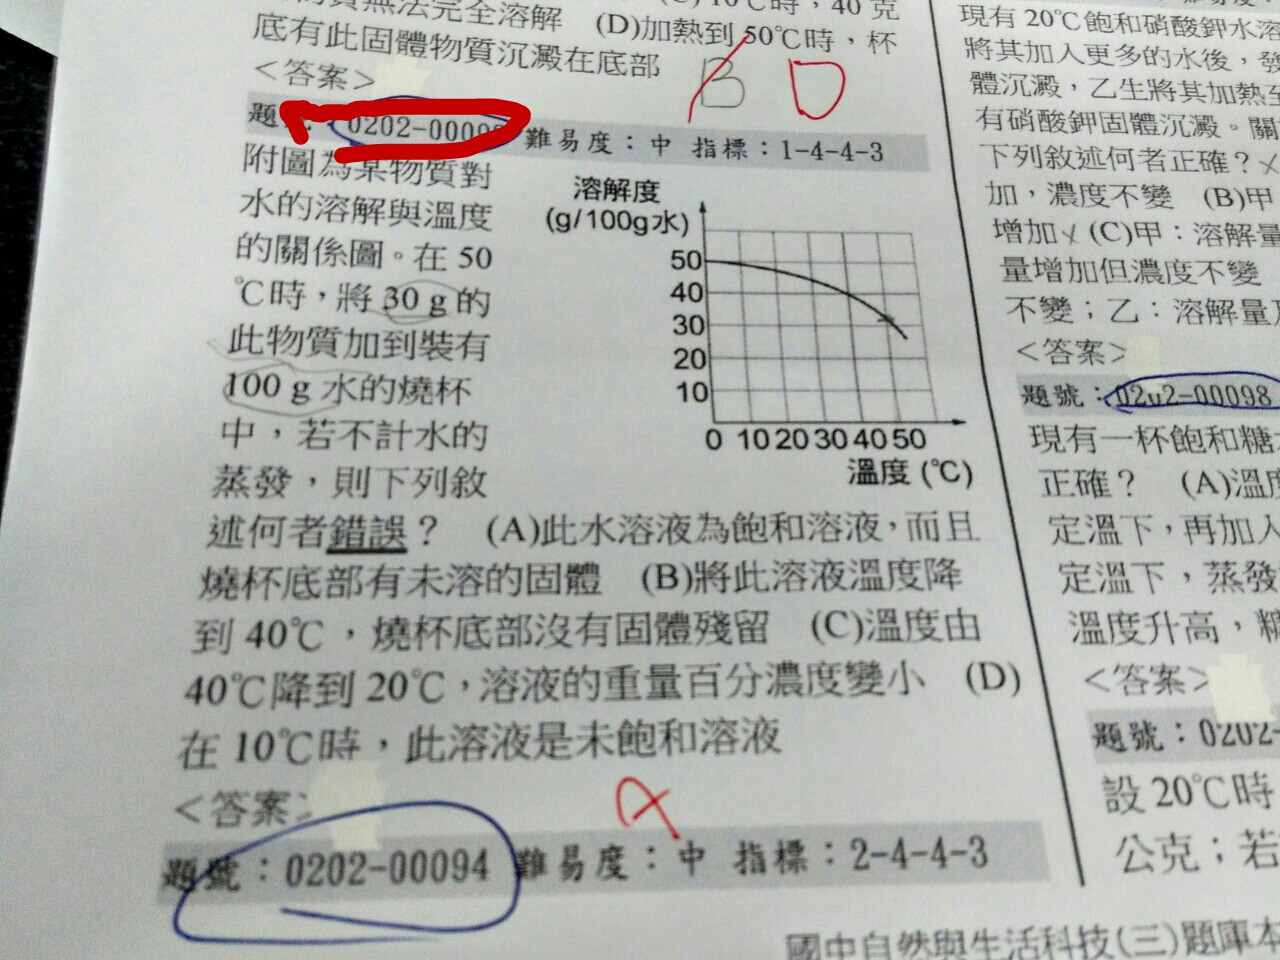 10℃時，40克
底有此固體物質沉澱在底部
解 (D)加熱到50℃時，杯
<答案>
B D
題 0202-0009 難易度：中 指標：1-4-4-3
附圖為某物質對
水的溶解與溫度
的關係圖。在 50
℃時，將 30 g 的
此物質加到裝有
100 g 水的燒杯
中，若不計水的
蒸發，則下列敘
述何者錯誤？ (A)此水溶液為飽和溶液，而且
燒杯底部有未溶的固體 (B)將此溶液溫度降
到 40℃，燒杯底部沒有固體殘留 (C)溫度由
40℃降到 20℃，溶液的重量百分濃度變小 (D)
在 10℃時，此溶液是未飽和溶液
溶解度
(g/100g水)
50
40
30
20
10
0 10 20 30 40 50
溫度 (℃)
<答案>
A
題號：0202-00094 難易度：中 指標：2-4-4-3
現有 20℃飽和硝酸鉀水溶
將其加入更多的水後，發
體沉澱，乙生將其加熱至
有硝酸鉀固體沉澱。關
下列敘述何者正確？
加，濃度不變 (B)甲
增加 (C)甲：溶解量
量增加但濃度不變
不變；乙：溶解量及
<答案>
題號：0202-00098
現有一杯飽和糖水
正確？ (A)溫度
定溫下，再加入
定溫下，蒸發
溫度升高，糖
<答案>
題號：0202-
設 20℃時
公克；若
國中自然與生活科技(三)題庫本